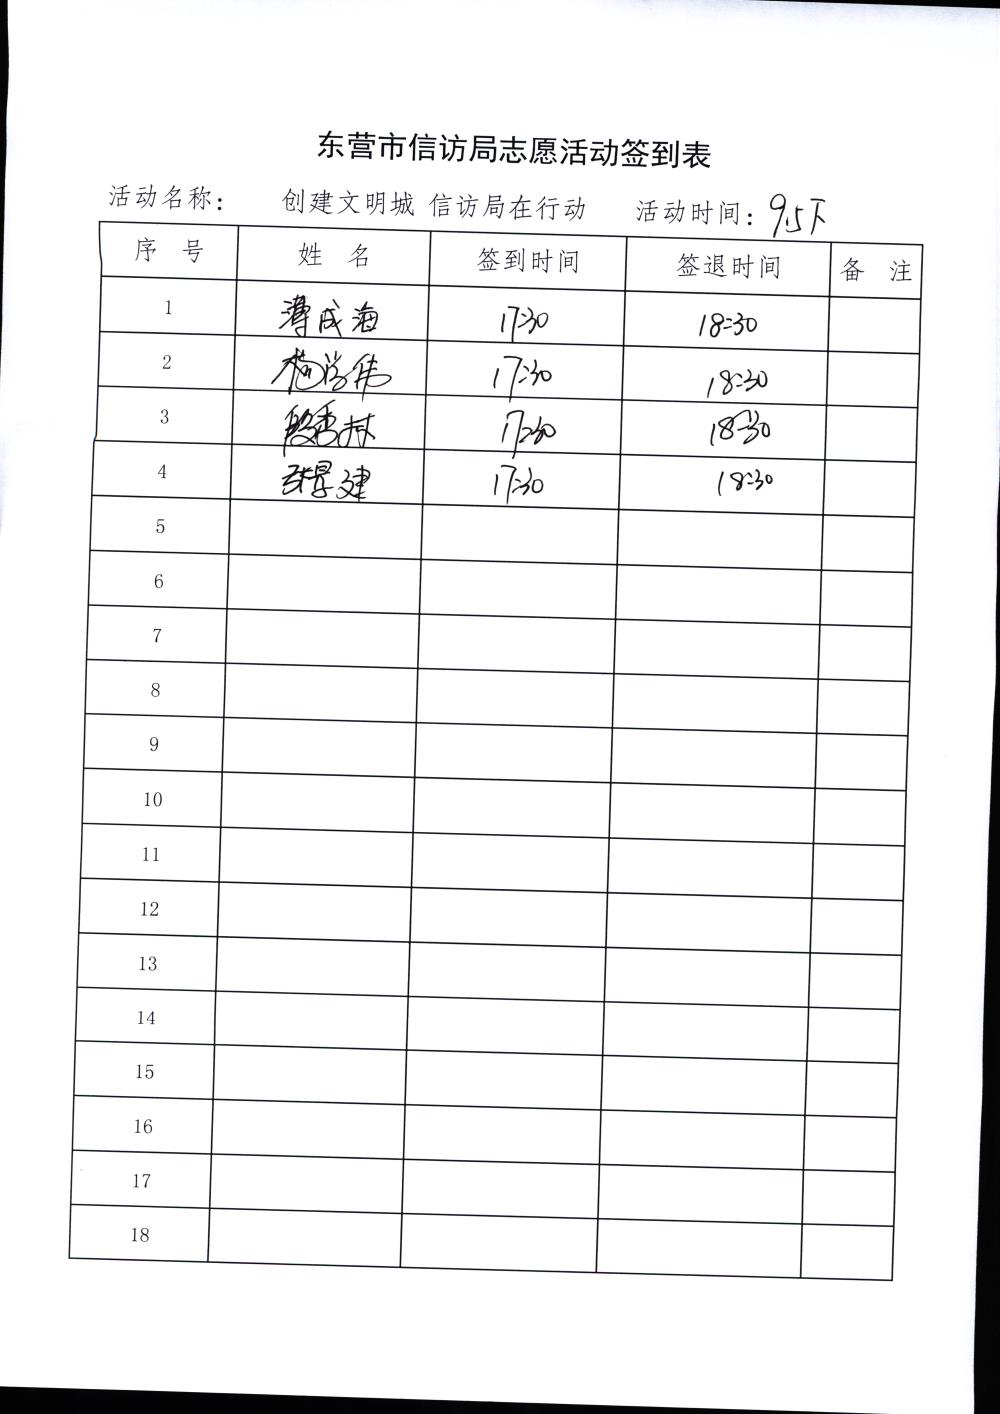 东营市信访局志愿活动签到表
活动名称: 创建文明城 信访局在行动 活动时间: 9.5下
序 号 姓 名 签到时间 签退时间 备 注
1 薄成海 17:30 18:30
2 杨 伟 17:30 18:30
3 段秀林 17:30 18:30
4 张景建 17:30 18:30
5
6
7
8
9
10
11
12
13
14
15
16
17
18